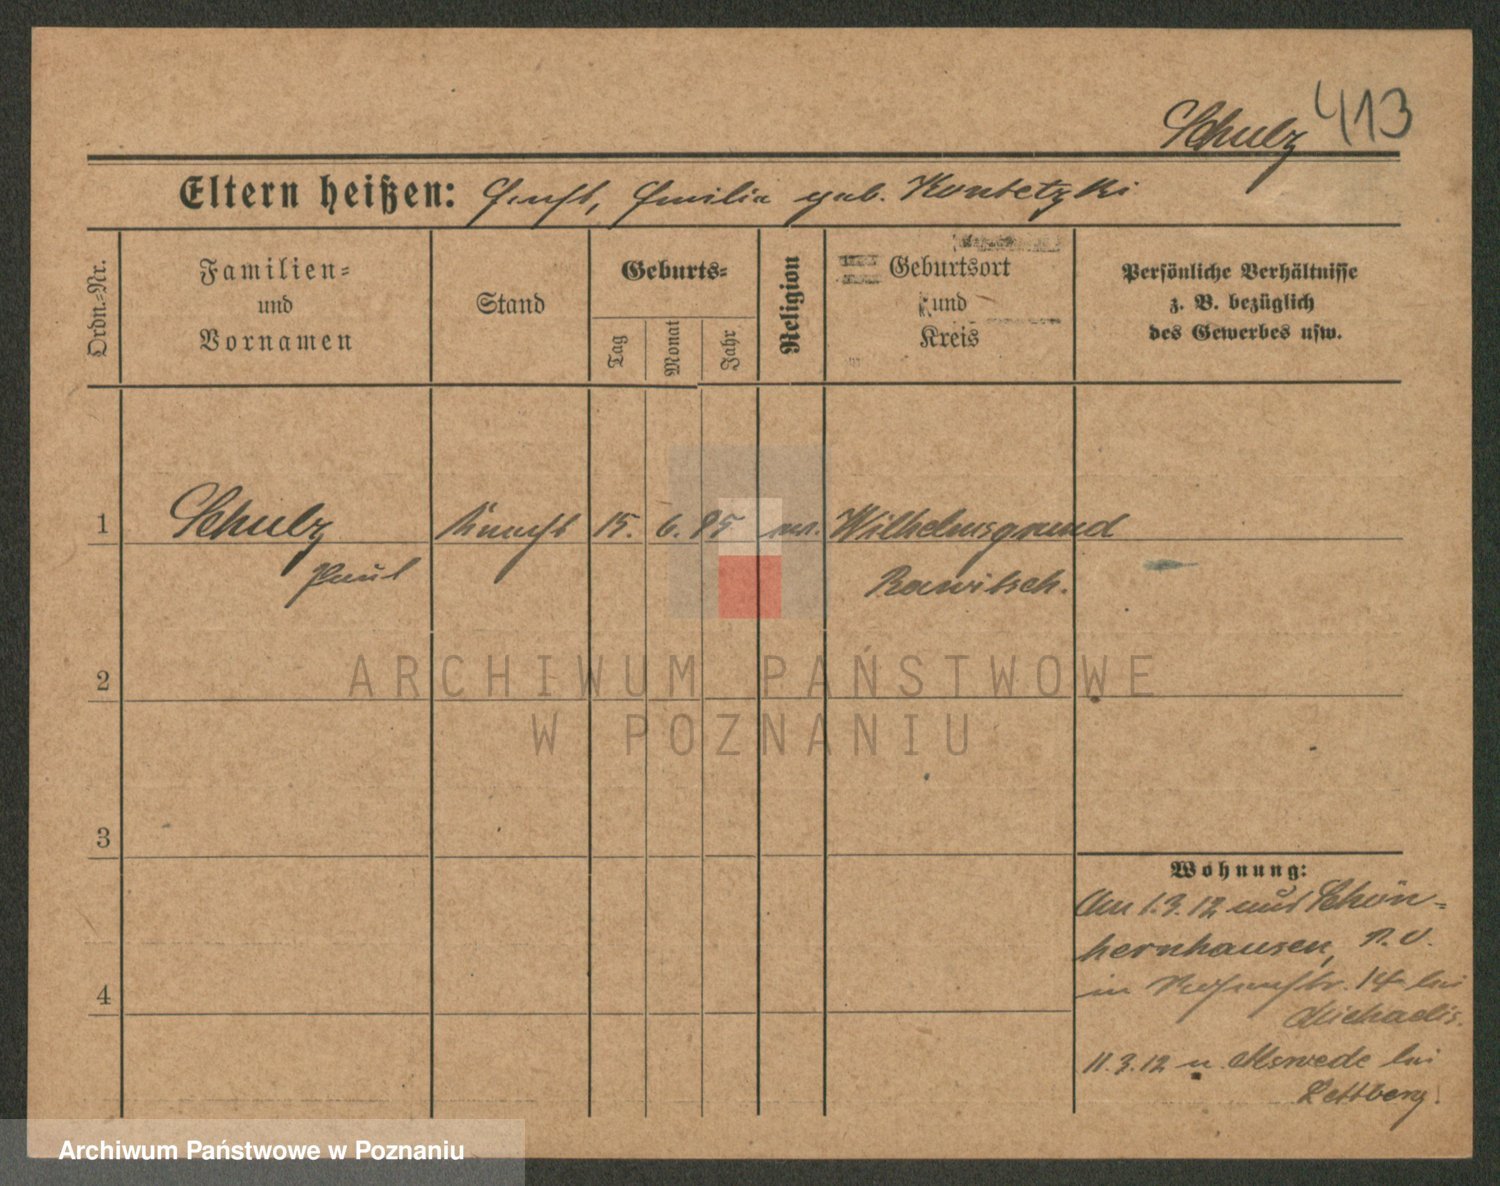 413
Schulz
Eltern heißen: Ernst, Emilie geb. Kontetzki
Ordn.-Nr.
Familien-
und
Vornamen
Stand
Geburts-
Tag
Monat
Jahr
Religion
Geburtsort
und
Kreis
Persönliche Verhältnisse
z. B. bezüglich
des Gewerbes usw.
1
Schulz
Paul
Knecht
15. 6. 95
Wilhelmsgrund
Rawitsch.
2
3
4
Wohnung:
Am 1.3.12 aus Schön-
herrnhausen,
in 14 bei
Michaelis.
11.3.12 n. bei
Rettberg.
ARCHIWUM PAŃSTWOWE
W POZNANIU
Archiwum Państwowe w Poznaniu